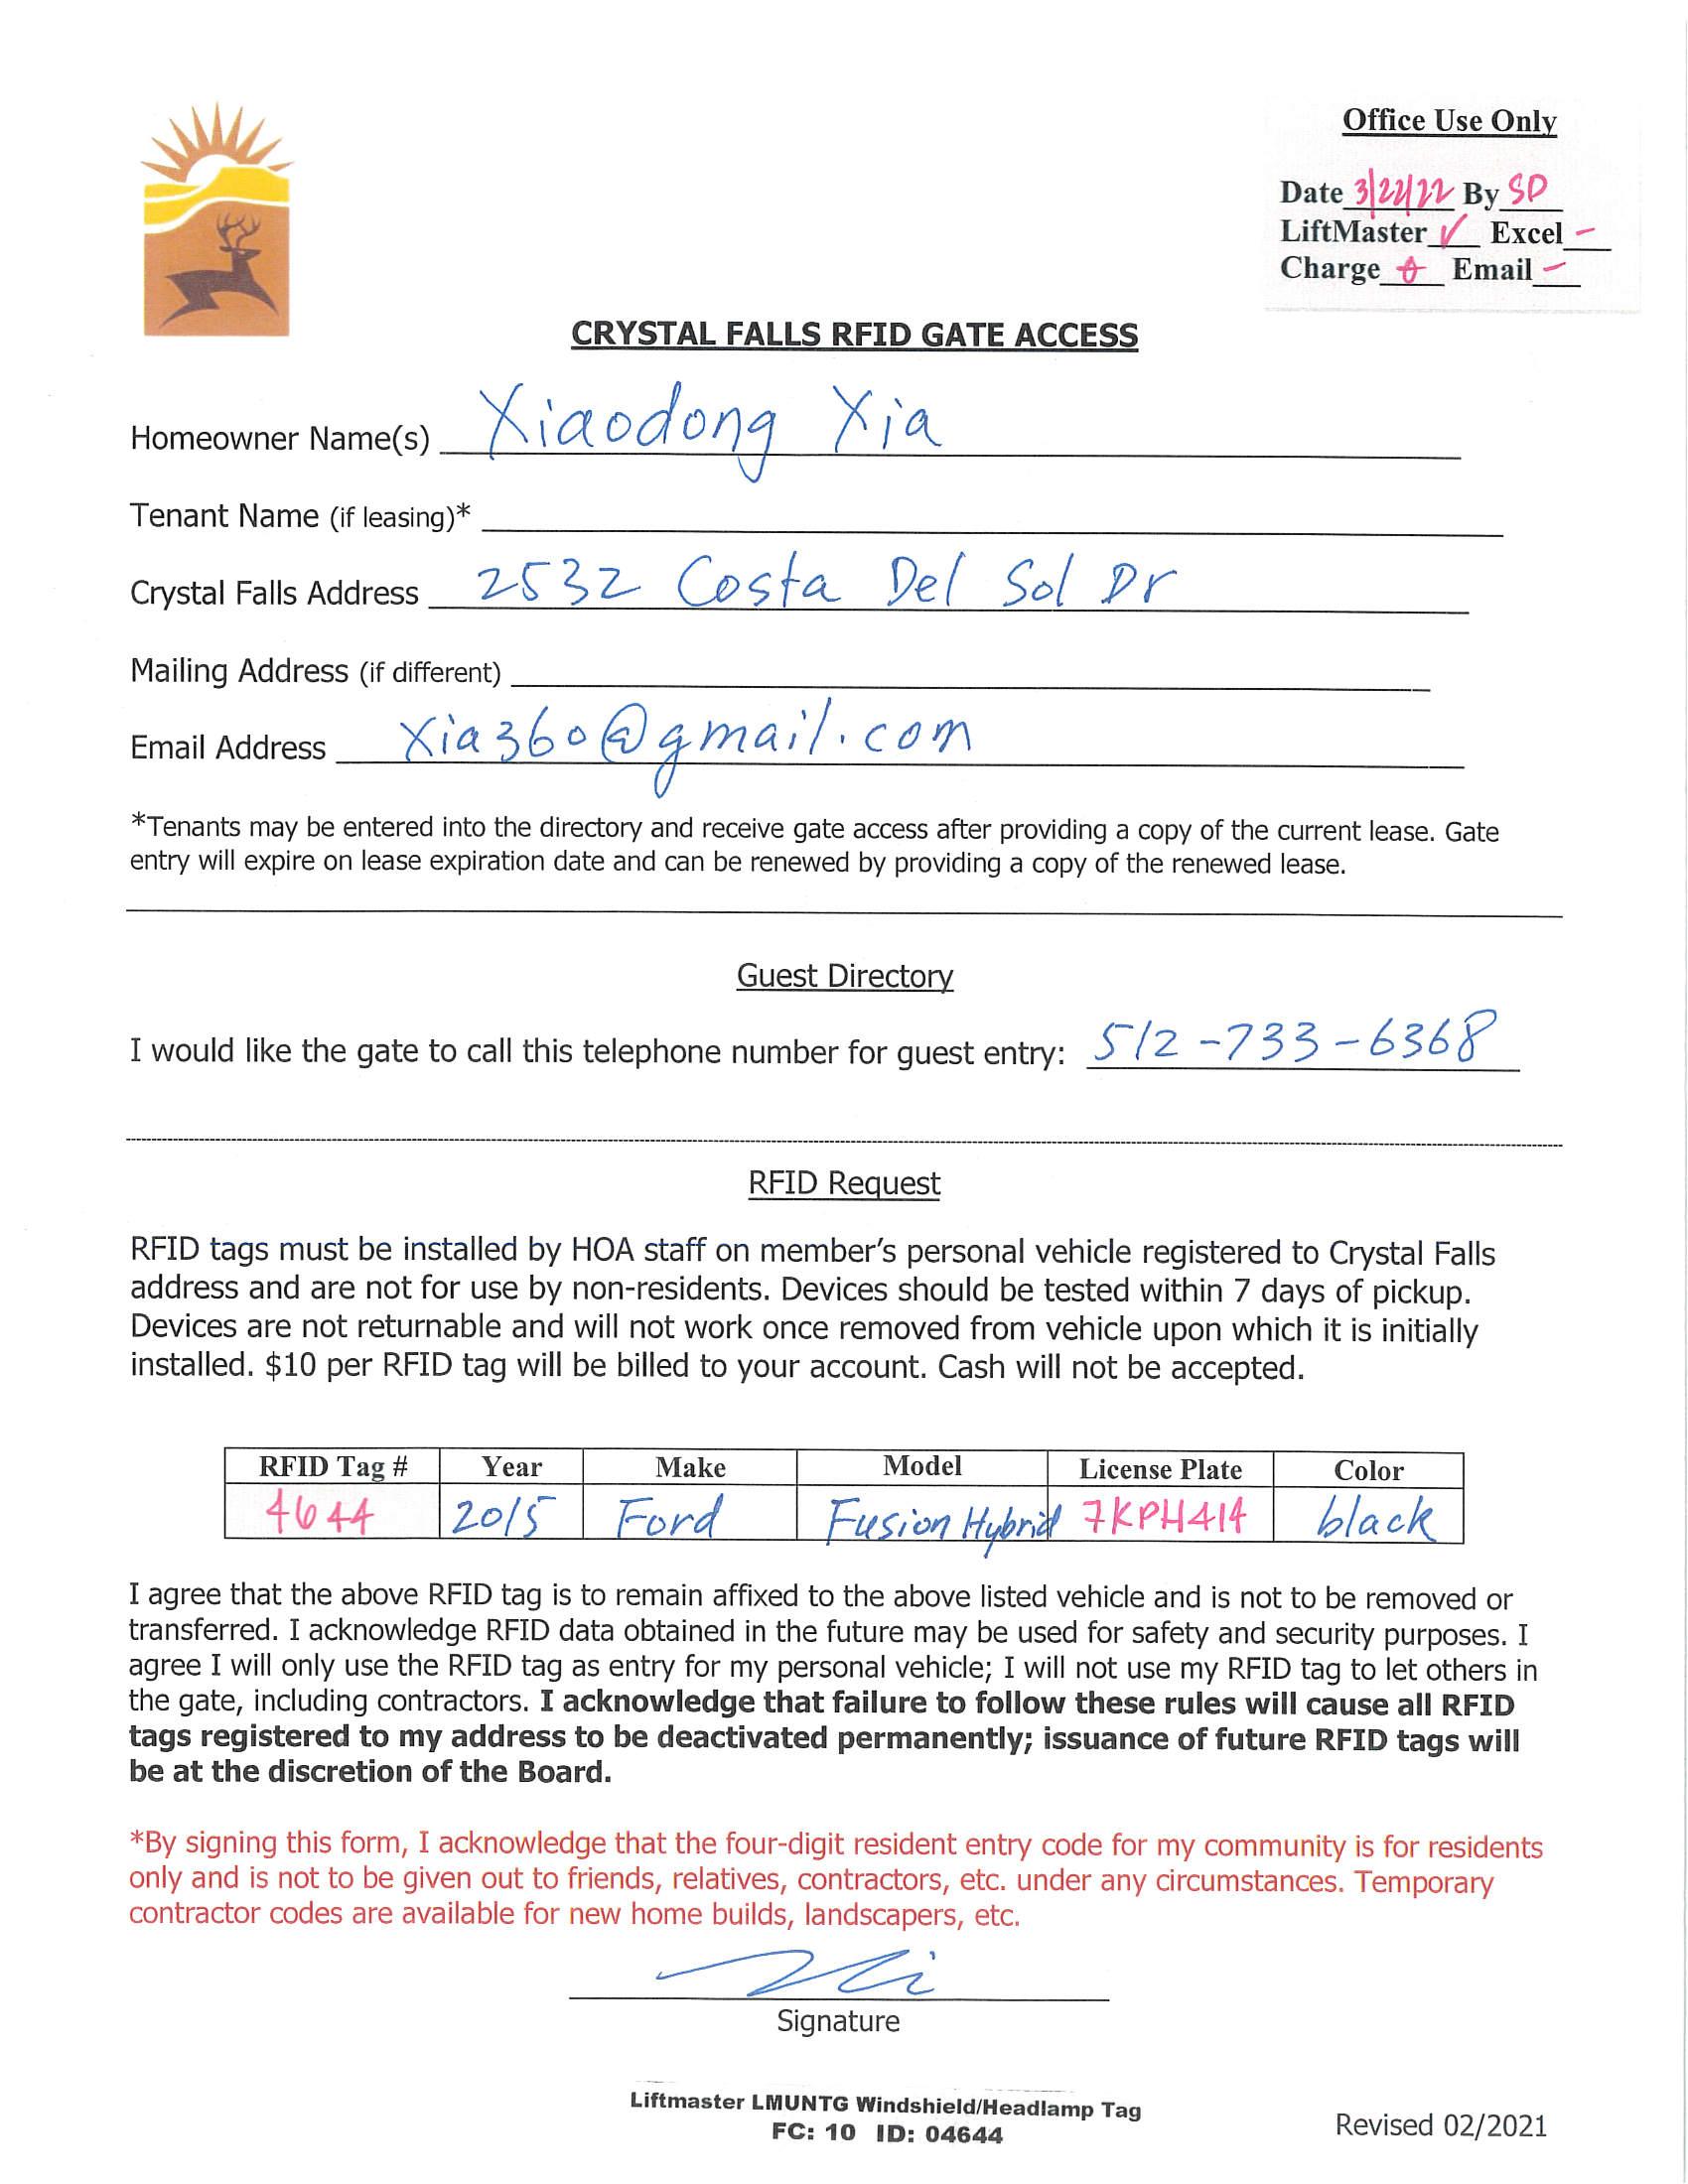 Office Use Only
Date 3/22/22 By SD
LiftMaster ✓ Excel -
Charge Email -
CRYSTAL FALLS RFID GATE ACCESS
Homeowner Name(s) Xiaodong Xia
Tenant Name (if leasing)*
Crystal Falls Address 2532 Costa Del Sol Dr
Mailing Address (if different)
Email Address Xia360@gmail.com
*Tenants may be entered into the directory and receive gate access after providing a copy of the current lease. Gate
entry will expire on lease expiration date and can be renewed by providing a copy of the renewed lease.
Guest Directory
I would like the gate to call this telephone number for guest entry: 512-733-6368
RFID Request
RFID tags must be installed by HOA staff on member's personal vehicle registered to Crystal Falls
address and are not for use by non-residents. Devices should be tested within 7 days of pickup.
Devices are not returnable and will not work once removed from vehicle upon which it is initially
installed. $10 per RFID tag will be billed to your account. Cash will not be accepted.
RFID Tag # Year Make Model License Plate Color
4644 2015 Ford Fusion Hybrid 7KPH414 black
I agree that the above RFID tag is to remain affixed to the above listed vehicle and is not to be removed or
transferred. I acknowledge RFID data obtained in the future may be used for safety and security purposes. I
agree I will only use the RFID tag as entry for my personal vehicle; I will not use my RFID tag to let others in
the gate, including contractors. I acknowledge that failure to follow these rules will cause all RFID
tags registered to my address to be deactivated permanently; issuance of future RFID tags will
be at the discretion of the Board.
*By signing this form, I acknowledge that the four-digit resident entry code for my community is for residents
only and is not to be given out to friends, relatives, contractors, etc. under any circumstances. Temporary
contractor codes are available for new home builds, landscapers, etc.
Signature
Liftmaster LMUNTG Windshield/Headlamp Tag
FC: 10 ID: 04644
Revised 02/2021